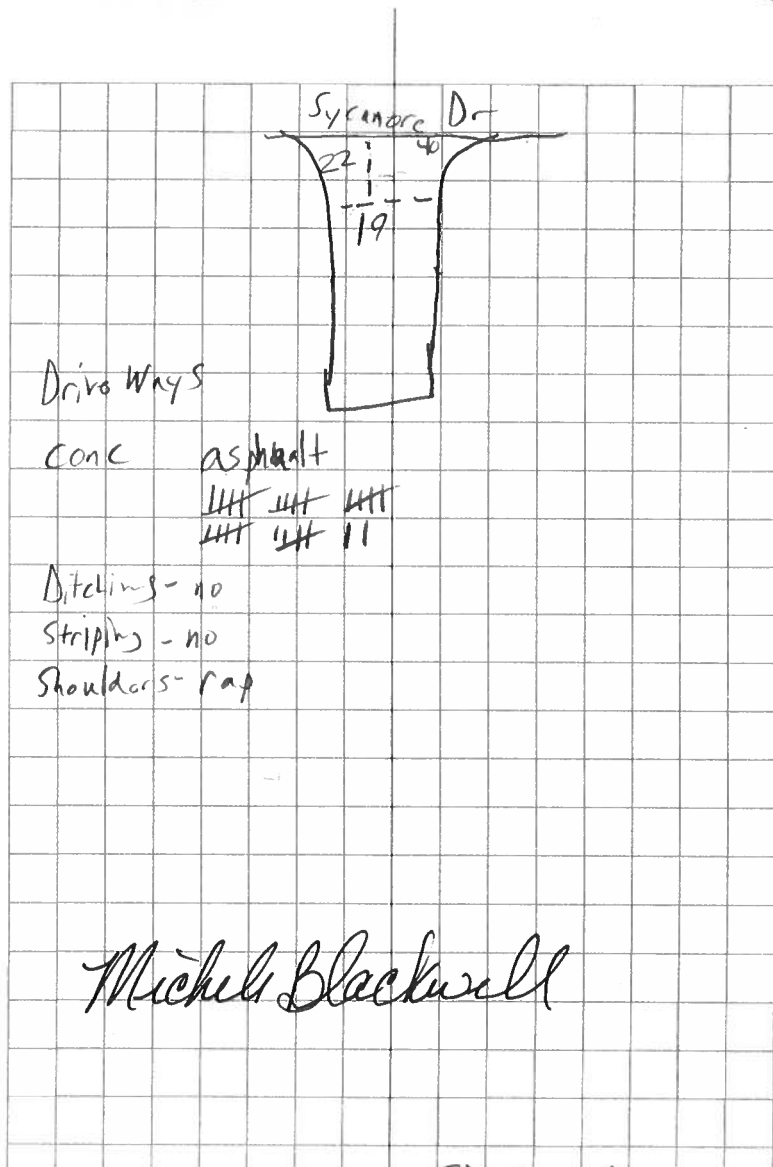 Sycamore Dr
22 40
19
Drive Ways
conc asphalt
Ditching - no
Striping - no
Shoulders - rap
Michele Blackwell